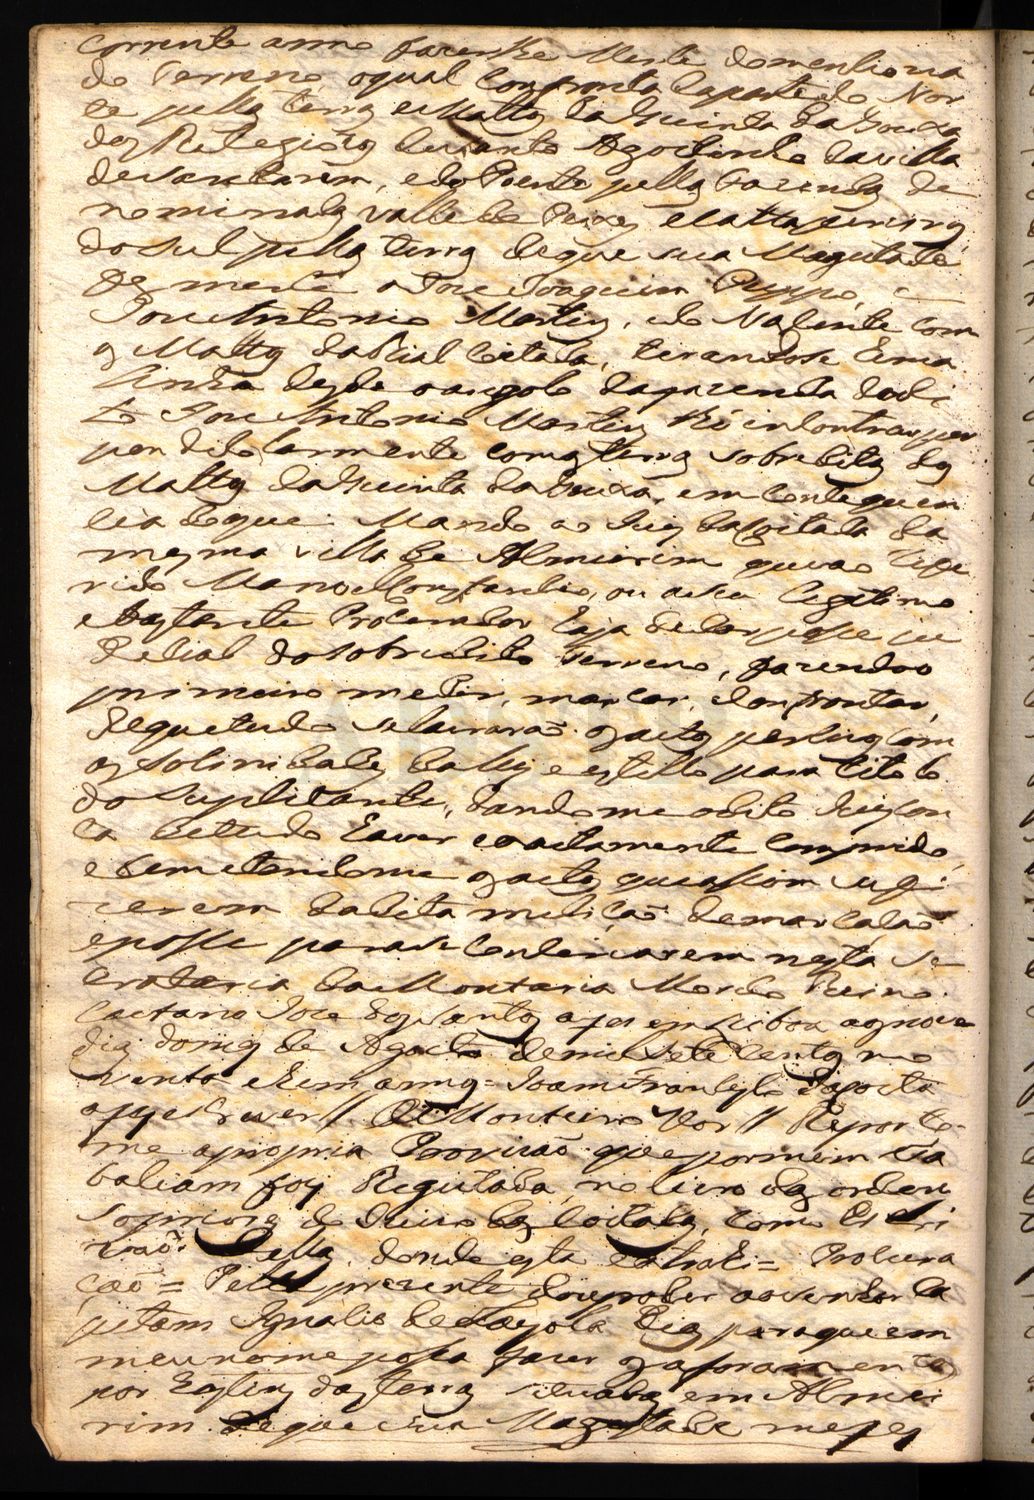 corrente anno fazerlhe Merce domenciona
do Terreno, oqual confronta daparte do Nor
te pella terra e Mattos da Quinta da Gouxa
dos Religiozos de Santo Agostinho davilla
de Santarem, e do Poente pellas fazendas de
nominadas valle de Peixe, e
do Sul pellas terras deque sua Magestade
fez merce a Joze Joaquim e
Joze Antonio Martins, e do Nascente com
os Mattos da Real Coitada, tirandose huma
Linha desde oangolo dafazenda dodi
to Joze Antonio Martins the incontrar per
pendicolarmente comas terras sobreditas dos
Mattos da Quinta da Gouxa, em conse quen
cia doque Mando ao Juiz das Coitadas da
mesma villa de Almeirim que ao refe
rido Manoel Constancio, ou aseu legitimo
ebastante Procurador haja de dar posse ju
dicial do sobredito Terreno, fazendoo
primeiro medir, marcar, confrontar,
dequetudo selavrarão os actos percizos com
as solinidades da Ley e estillo para titolo
do Suplicante, dandome odito Juiz con
ta detudo haver exactamente comprido,
e remetendome os actos que assim se fi
zerem dadita medição demarcação
eposse para se concervarem nesta Se
cretaria da Montaria Mor do Reino.
Caetano Joze dos Santos afes em Lisboa aos nove
dias domes de Agosto demil e sete centos no
venta e hum annos = Joam da Costa
afes escrever // O Monteiro Mor // Reporto
me apropria Provizão que por mim
foy Registada no livro das ordens
do Juizo das Coitadas, como Escri
vão dellas, donde esta extrahi = Procura
ção = Pela prezente dou poder ao senhor Ca
pitam Ignacio de Loyola Dias para que em
meu nome possa fazer os aforamentos
por hasties das terras situadas em Almei
rim deque sua Magestade me fes